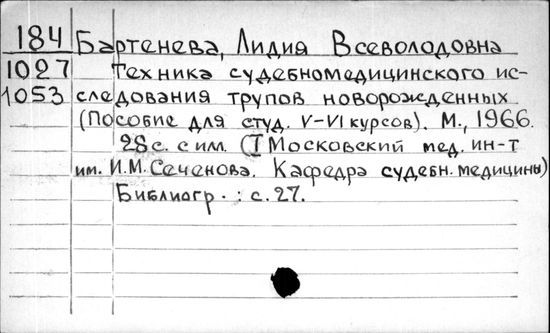 184 Бартенева, Лидия Всеволодовна
1027 Техника судебномедицинского ис-
1053 следования трупов новорожденных
(Пособие для студ. V-VI курсов). М., 1966.
28 с. с илл. (I Московский мед. ин-т
им. И.М. Сеченова. Кафедра судебн. медицины)
Библиогр.: с. 27.